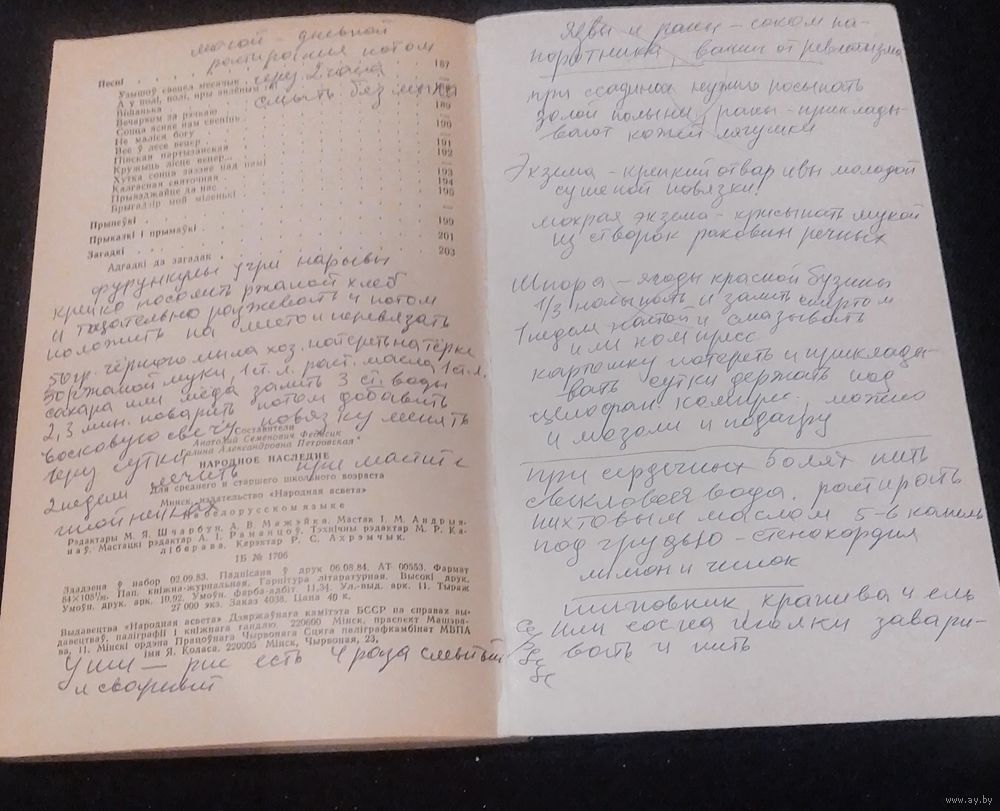 мочой - дневной
растирания потом
через 2 часа
смыть без мыла
Песні 187
Узышоў свецел месячык —
А ў полі, полі, пры зялёным гаі
Вішанька
Вечарком за рэчкаю 189
Сонца яснае нам свеціць —
Не маліся богу 190
Вее ў лесе вецер —
Пінская партызанская 191
Кружыць лісце вецер... 192
Хутка сонца заззяе над намі —
Калгасная святочная 193
Прыязджайце да нас 194
Брыгадзір мой міленькі 195
Прыпеўкі 199
Прыказкі і прымаўкі 201
Загадкі 203
Адгадкі да загадак
фурункулы угри нарывы
крепко посолить ржаной хлеб
и тщательно разжевать и потом
положить на место и перевязать
50 гр. чёрного мыла хоз. натереть на тёрке
50 ржаной муки, 1 ст. л. раст. масла 1 ст. л.
сахара или мёда залить 3 ст. воды
2,3 мин. поварить потом добавить
восковую свечу повязку менять
через сутки
2 недели лечить при мастите
гнойнички
Составители
Анатолий Семенович Федосик
Галина Александровна Петровская
НАРОДНОЕ НАСЛЕДИЕ
Для среднего и старшего школьного возраста
Минск, издательство «Народная асвета»
На белорусском языке
Рэдактары М. Я. Шчарбун, А. В. Мажэйка. Мастак І. М. Андрыя-
наў. Мастацкі рэдактар А. І. Раманцоў. Тэхнічны рэдактар М. Р. Ка-
ліберава. Карэктар Р. С. Ахрэмчык.
ІБ № 1706
Здадзена ў набор 02.09.83. Падпісана ў друк 06.08.84. АТ 00553. Фармат
84×108¹/₃₂. Пап. кніжна-журнальная. Гарнітура літаратурная. Высокі друк.
Умоўн. друк. арк. 10,92. Умоўн. фарба-адбіт. 11,34. Ул.-выд. арк. 11. Тыраж
27 000 экз. Заказ 4038. Цана 40 к.
Выдавецтва «Народная асвета» Дзяржаўнага камітэта БССР па справах вы-
давецтваў, паліграфіі і кніжнага гандлю. 220600 Мінск, праспект Машэра-
ва, 11. Мінскі ордэна Працоўнага Чырвонага Сцяга паліграфкамбінат МВПА
імя Я. Коласа. 220005 Мінск, Чырвоная, 23.
Уши — рис есть 4 раза смытый
и сваренный
Язвы и раны - соком па-
поротника, ванны от ревматизма
при ссадинах нужно посыпать
золой полыни, раны - приклады-
вают кожей лягушки
Экзема - крепкий отвар ивы молодой
сушеной повязки!
мокрая экзема - присыпать мукой
из створок раковин речных
Шпора - ягоды красной бузины
1/3 насыпать и залить спиртом
1 неделю настой и смазывать
или компресс
картошку потереть и приклады-
вать сутки держать под
целофан. компрес. можно
и мозоли и подагру
при сердечных болях пить
свекловая вода. растирать
пихтовым маслом 5-6 капель
под грудью - стенокардия
лимон и чеснок
шиповник, крапива и ель
или сосна иголки завари-
вать и пить
www.ay.by